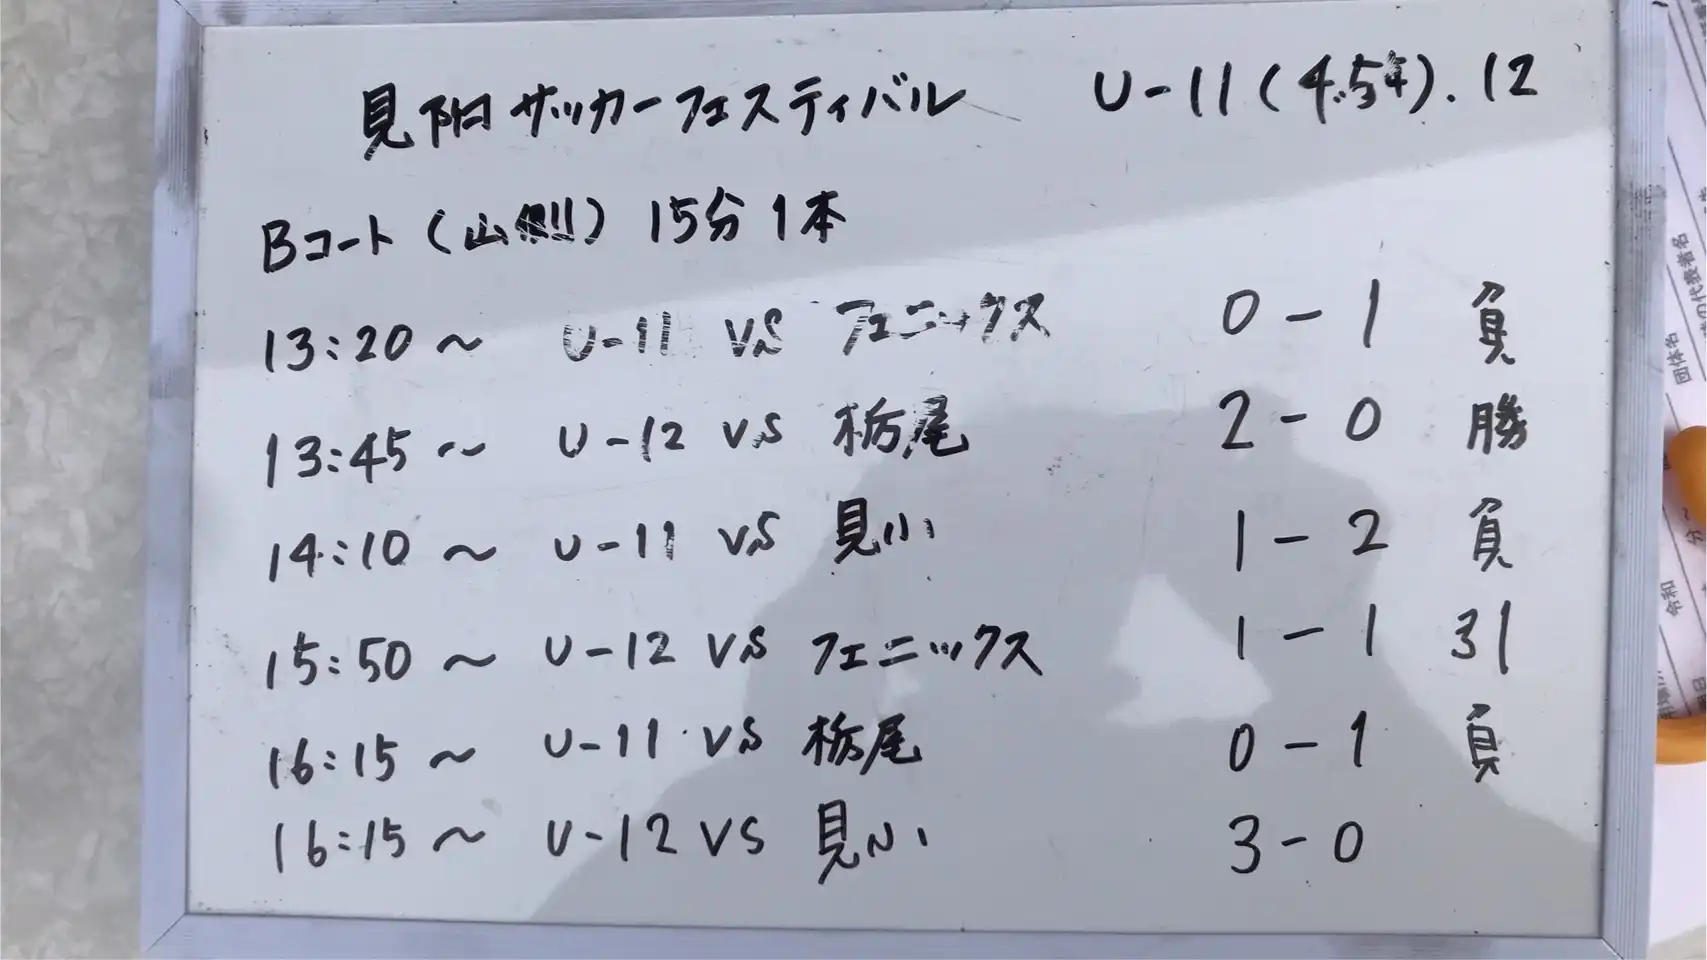 見附サッカーフェスティバル U-11(4.5年).12
Bコート(山側) 15分1本
13:20～ U-11 VS フェニックス 0-1 負
13:45～ U-12 VS 栃尾 2-0 勝
14:10～ U-11 VS 見小 1-2 負
15:50～ U-12 VS フェニックス 1-1 引
16:15～ U-11 VS 栃尾 0-1 負
16:15～ U-12 VS 見小 3-0
団体名
の代表者名
分～
令和